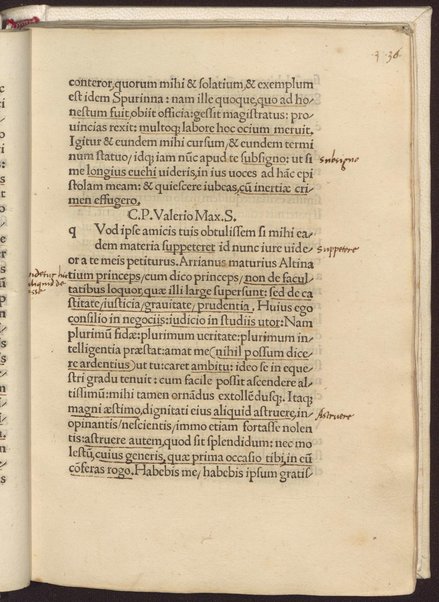 3 36
conteror,quorum mihi & solatium,& exemplum
est idem Spurinna : nam ille quoque,quo ad ho-
nestum fuit,obiit officia:gessit magistratus: pro-
uincias rexit: multoq; labore hoc ocium meruit.
Igitur & eundem mihi cursum,& eundem termi
num statuo/idq; iam nũc apud te subsigno: ut si
subsigno
me longius euehi uideris,in ius uoces ad hãc epi
stolam meam: & quiescere iubeas,cũ inertiæ cri-
men effugero.
C.P.Valerio Max.S.
q Vod ipse amicis tuis obtulissem si mihi ea-
dem materia suppeteret id nunc iure uide/
suppetere
or a te meis petiturus.Arrianus maturius Altina
tium princeps/cum dico princeps/non de facul-
tatibus loquor,quæ illi large supersunt: sed de ca
stitate/iusticia/grauitate/prudentia. Huius ego
consilio in negociis:iudicio in studiis utor: Nam
plurimũ fidæ: plurimum ueritate: plurimum in-
telligentia præstat:amat me (nihil possum dice-
re ardentius) ut tu:caret ambitu: ideo se in eque-
stri gradu tenuit : cum facile possit ascendere al-
tissimũ: mihi tamen ornãdus extollẽdusq;. Itaq;
magni æstimo,dignitati eius aliquid astruere,in-
Astruere
opinantis/nescientis/immo etiam fortasse nolen
tis:astruere autem,quod sit splendidum: nec mo
lestũ,cuius generis, quæ prima occasio tibi,in eũ
cõferas rogo. Habebis me/habebis ipsum gratis-